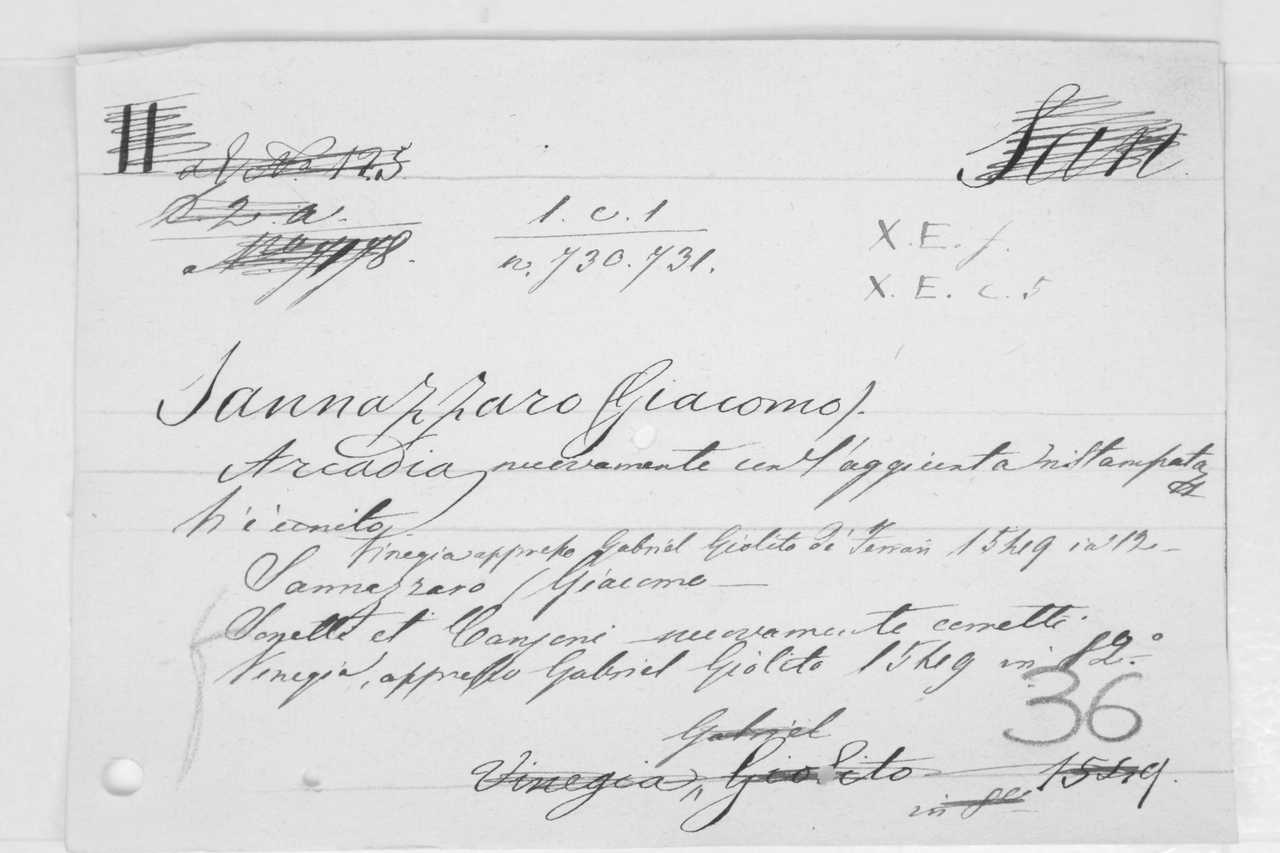 II
San
a V No. 125
1. c. 1
X. E. f.
n. 730.731.
X. E. c. 5
Sannazzaro (Giacomo).
Arcadia, nuovamente con l'aggiunta ristampata
Vinegia appresso Gabriel Giolito de' Ferrari 1549 in 12
Sannazzaro (Giacomo
Sonetti et Canzoni nuovamente corretti.
Vinegia, appresso Gabriel Giolito 1549 in 12.°
36
Gabriel
Vinegia, Giolito 1549.
in